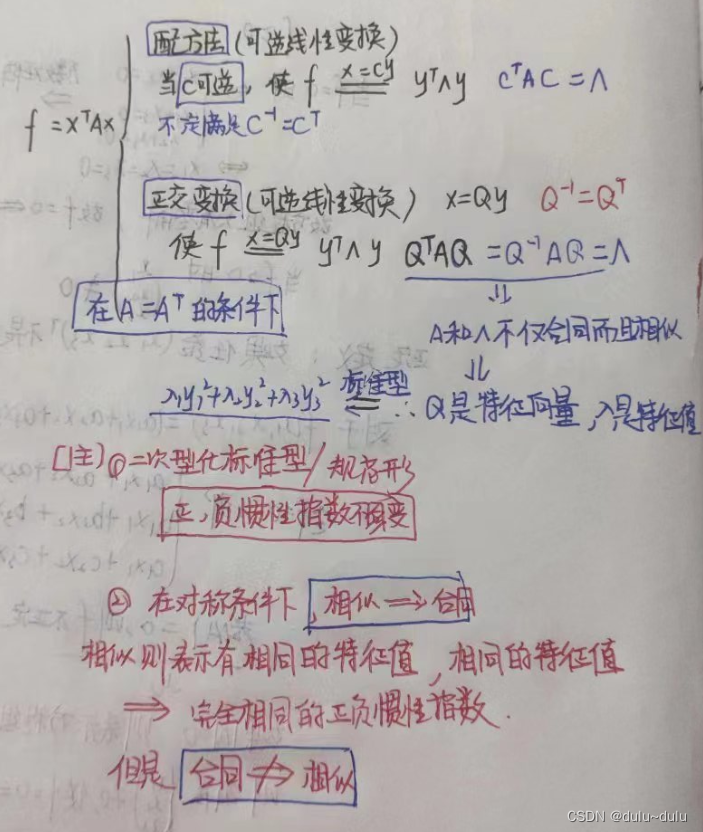 配方法 (可逆线性变换)
当C可逆, 使 f x=Cy yᵀΛy CᵀAC=Λ
f=XᵀAX
不一定满足C⁻¹=Cᵀ
正交变换 (可逆线性变换) x=Qy Q⁻¹=Qᵀ
使 f x=Qy yᵀΛy QᵀAQ=Q⁻¹AQ=Λ
在A=Aᵀ的条件下
⇓
A和Λ不仅合同而且相似
⇓
λ₁y₁²+λ₂y₂²+λ₃y₃² 标准型 ⇐ ∴ Q是特征向量,λ是特征值
[注] ①二次型化标准型/规范形
正、负惯性指数不变
② 在对称条件下, 相似⇒合同
相似则表示有相同的特征值, 相同的特征值
⇒ 完全相同的正负惯性指数.
但是 合同⇏相似
CSDN @dulu~dulu